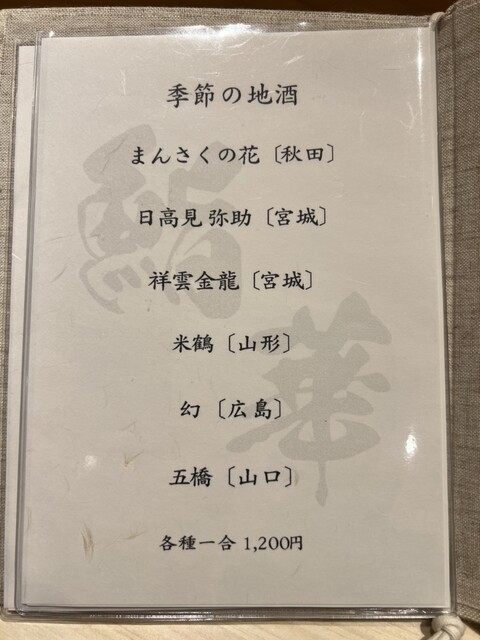 季節の地酒
まんさくの花〔秋田〕
日高見 弥助〔宮城〕
祥雲金龍〔宮城〕
米鶴〔山形〕
幻〔広島〕
五橋〔山口〕
各種一合 1,200円
鮨
華